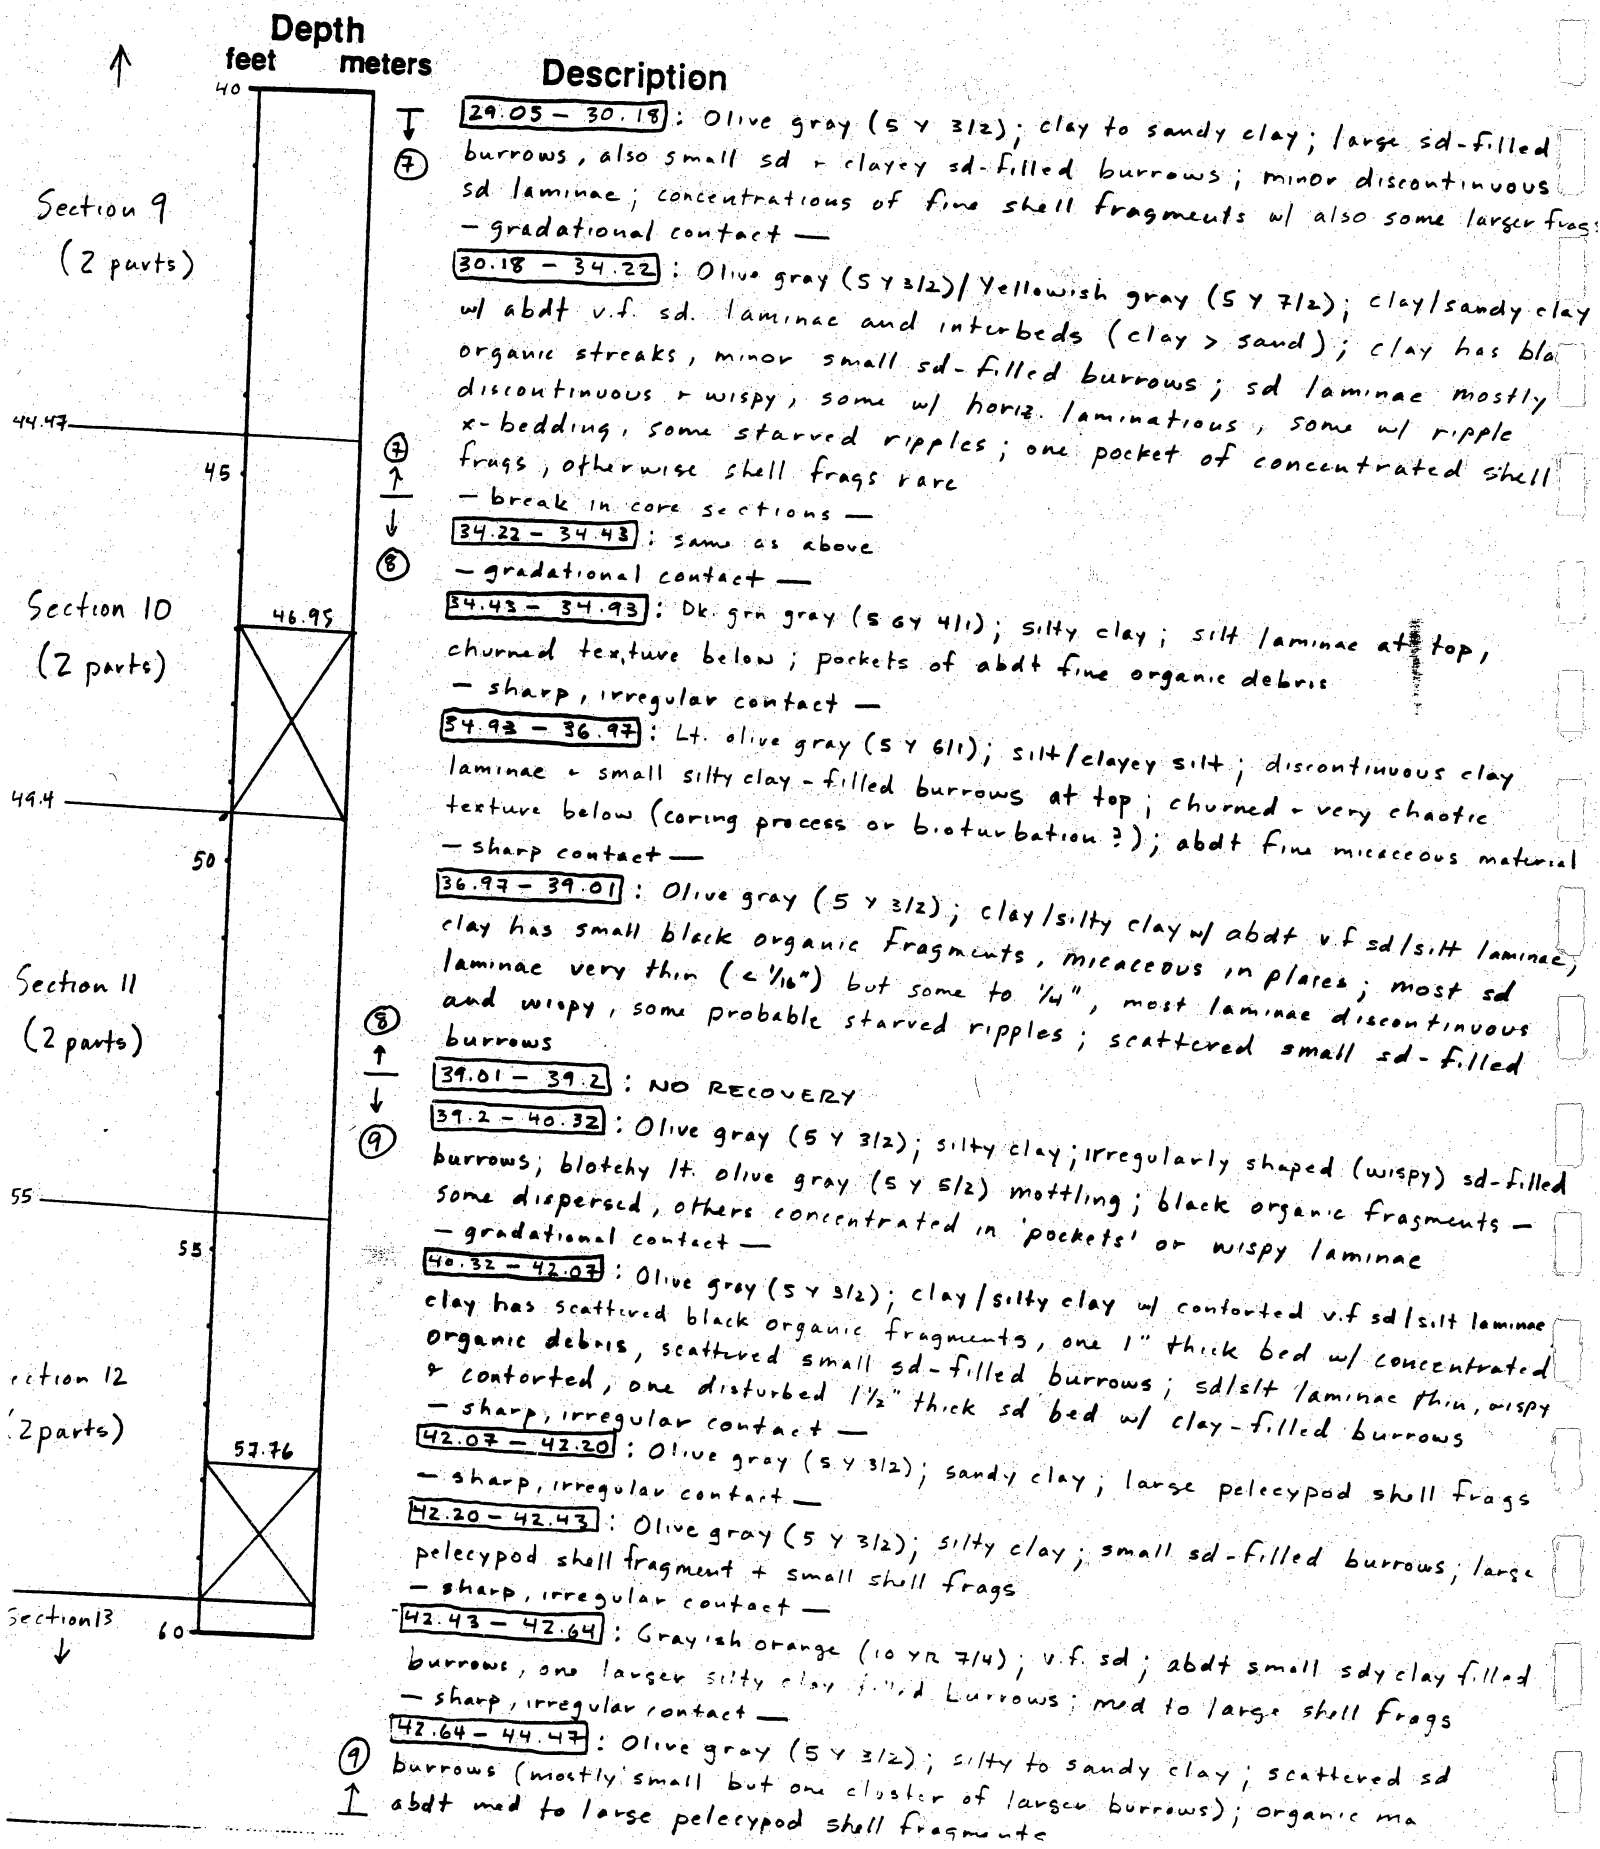 Depth
feet meters
Description
40
29.05 – 30.18 : Olive gray (5 Y 3/2); clay to sandy clay; large sd-filled
⑦ burrows, also small sd + clayey sd-filled burrows; minor discontinuous
sd laminae; concentrations of fine shell fragments w/ also some larger frags
— gradational contact —
Section 9
(2 parts)
30.18 – 34.22 : Olive gray (5 Y 3/2)/Yellowish gray (5 Y 7/2); clay/sandy clay
w/ abdt v.f. sd. laminae and interbeds (clay > sand); clay has bla
organic streaks, minor small sd-filled burrows; sd laminae mostly
discontinuous + wispy, some w/ horiz. laminations, some w/ ripple
x-bedding, some starved ripples; one pocket of concentrated shell
frags, otherwise shell frags rare
44.47
45
⑦
— break in core sections —
34.22 – 34.43 : same as above
⑧
— gradational contact —
Section 10
(2 parts)
46.95
34.43 – 34.93 : Dk. grn gray (5 GY 4/1); silty clay; silt laminae at top,
churned texture below; pockets of abdt fine organic debris
— sharp, irregular contact —
34.93 – 36.97 : Lt. olive gray (5 Y 6/1); silt/clayey silt; discontinuous clay
laminae + small silty clay-filled burrows at top; churned + very chaotic
texture below (coring process or bioturbation?); abdt fine micaceous material
— sharp contact —
49.4
50
36.97 – 39.01 : Olive gray (5 Y 3/2); clay/silty clay w/ abdt v.f sd/silt laminae;
clay has small black organic fragments, micaceous in places; most sd
laminae very thin (< 1/16") but some to 1/4", most laminae discontinuous
and wispy, some probable starved ripples; scattered small sd-filled
burrows
Section 11
(2 parts)
⑧
39.01 – 39.2 : NO RECOVERY
⑨
39.2 – 40.32 : Olive gray (5 Y 3/2); silty clay; irregularly shaped (wispy) sd-filled
burrows; blotchy lt. olive gray (5 Y 5/2) mottling; black organic fragments —
some dispersed, others concentrated in 'pockets' or wispy laminae
— gradational contact —
55
55
40.32 – 42.07 : Olive gray (5 Y 3/2); clay/silty clay w/ contorted v.f sd/silt laminae
clay has scattered black organic fragments, one 1" thick bed w/ concentrated
organic debris, scattered small sd-filled burrows; sd/slt laminae thin, wispy
+ contorted, one disturbed 1½" thick sd bed w/ clay-filled burrows
— sharp, irregular contact —
ection 12
2 parts)
57.76
42.07 – 42.20 : Olive gray (5 Y 3/2); sandy clay; large pelecypod shell frags
— sharp, irregular contact —
42.20 – 42.43 : Olive gray (5 Y 3/2); silty clay; small sd-filled burrows; large
pelecypod shell fragment + small shell frags
— sharp, irregular contact —
Section 13
60
42.43 – 42.64 : Grayish orange (10 YR 7/4); v.f. sd; abdt small sdy clay filled
burrows, one larger silty clay filled burrows; med to large shell frags
— sharp, irregular contact —
42.64 – 44.47 : Olive gray (5 Y 3/2); silty to sandy clay; scattered sd
⑨ burrows (mostly small but one cluster of larger burrows); organic ma
abdt med to large pelecypod shell fragments